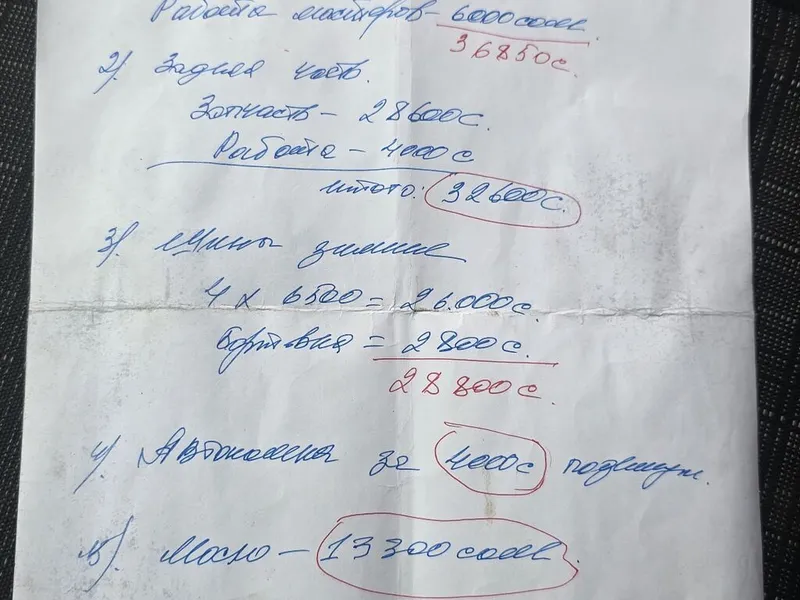 Работа мастеров - 6000 сом.
36850с.
2) Задняя часть.
Запчасть - 28600с.
Работа - 4000 с
итого: 32600с.
3) Шины зимние
4 х 6500 = 26.000с.
бортовка = 2800с.
28800с.
4) Автономка за 4000с
5) Масло - 13300 сом.